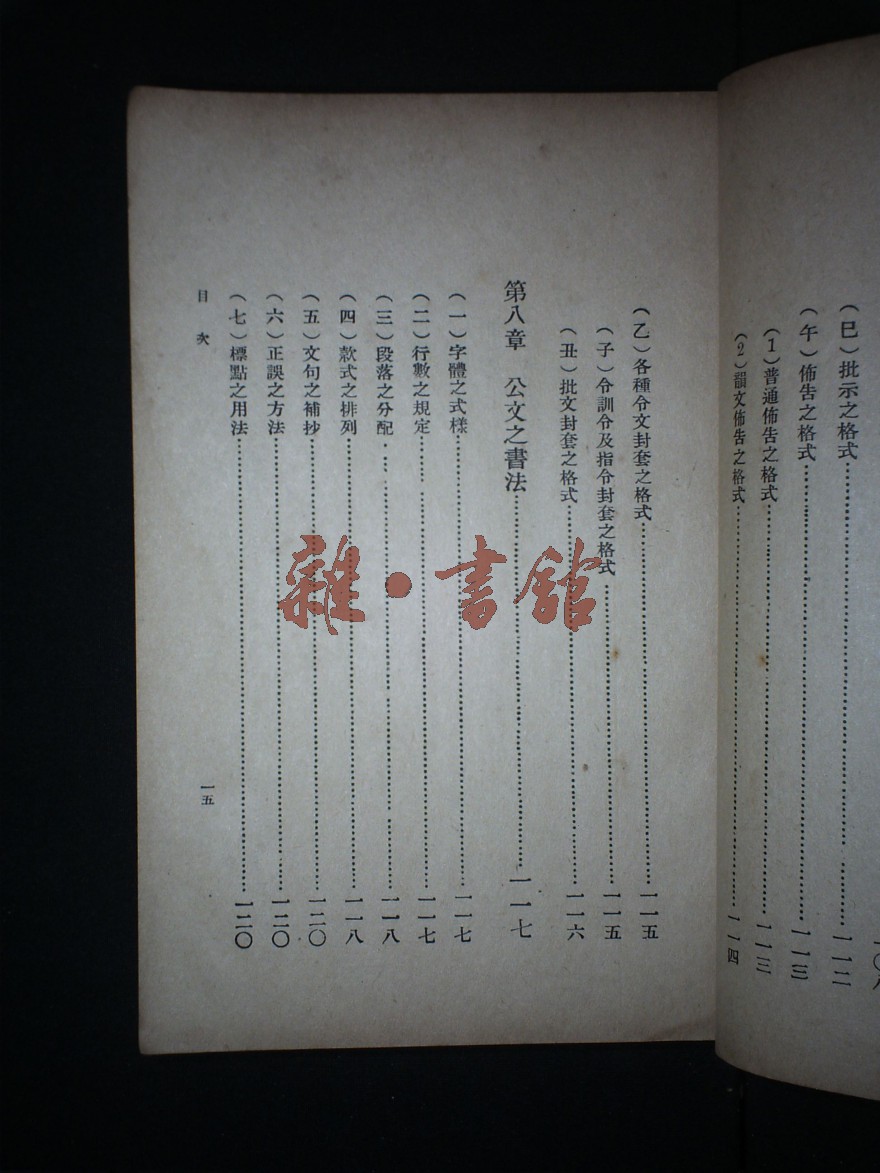 一〇八
（巳）批示之格式……一一二
（午）佈告之格式……一一三
（1）普通佈告之格式……一一三
（2）韻文佈告之格式……一一四
（乙）各種令文封套之格式……一一五
（子）令訓令及指令封套之格式……一一五
（丑）批文封套之格式……一一六
第八章　公文之書法……一一七
（一）字體之式樣……一一七
（二）行數之規定……一一七
（三）段落之分配……一一八
（四）款式之排列……一一八
（五）文句之補抄……一二〇
（六）正誤之方法……一二〇
（七）標點之用法……一二〇
目次
一五
雜·書館